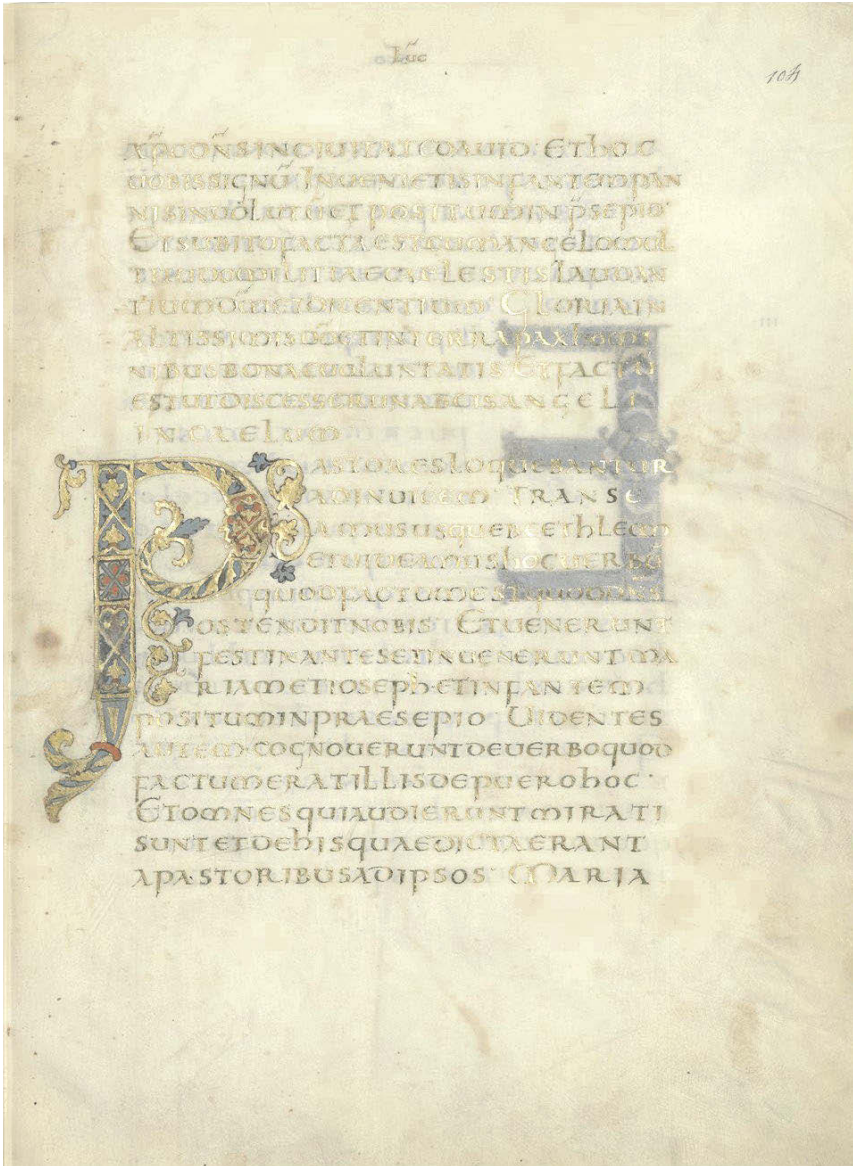 Luc̄
104
INCIUITATEDAUID· EThOC
UOBISSIGNŪ INUENIETISINFANTEMPAN
NISINUOLUTŪETPOSITUMINP̄SEPIO·
ETSUBITOFACTAESTCUMANGELOMUL
TITUDOMILITIAECAELESTISLAUDAN
TIUMD̄M̄ETDICENTIUM GLORIAIN
ALTISSIMISD̄OETINTERRAPAXhOMI
NIBUSBONAEUOLUNTATIS ETFACTŪ
ESTUTDISCESSERUNABEISANGELI
INCAELUM
PASTORESLOQUEBANTUR
ADINUICEM TRANSE
AMUSUSQUEBEThLEEM
ETUIDEAMUShOCUERBŪ
QUODFACTUMESTQUODDN̄S
OSTENDITNOBIS ETUENERUNT
FESTINANTESETINUENERUNTMA
RIAMETIOSEPhETINFANTEM
POSITUMINPRAESEPIO UIDENTES
AUTEM·COGNOUERUNTDEUERBOQUOD
FACTUMERATILLISDEPUEROhOC·
ETOMNESQUIAUDIERUNTMIRATI
SUNTETDEhISQUAEDICTAERANT
APASTORIBUSADIPSOS· MARIA